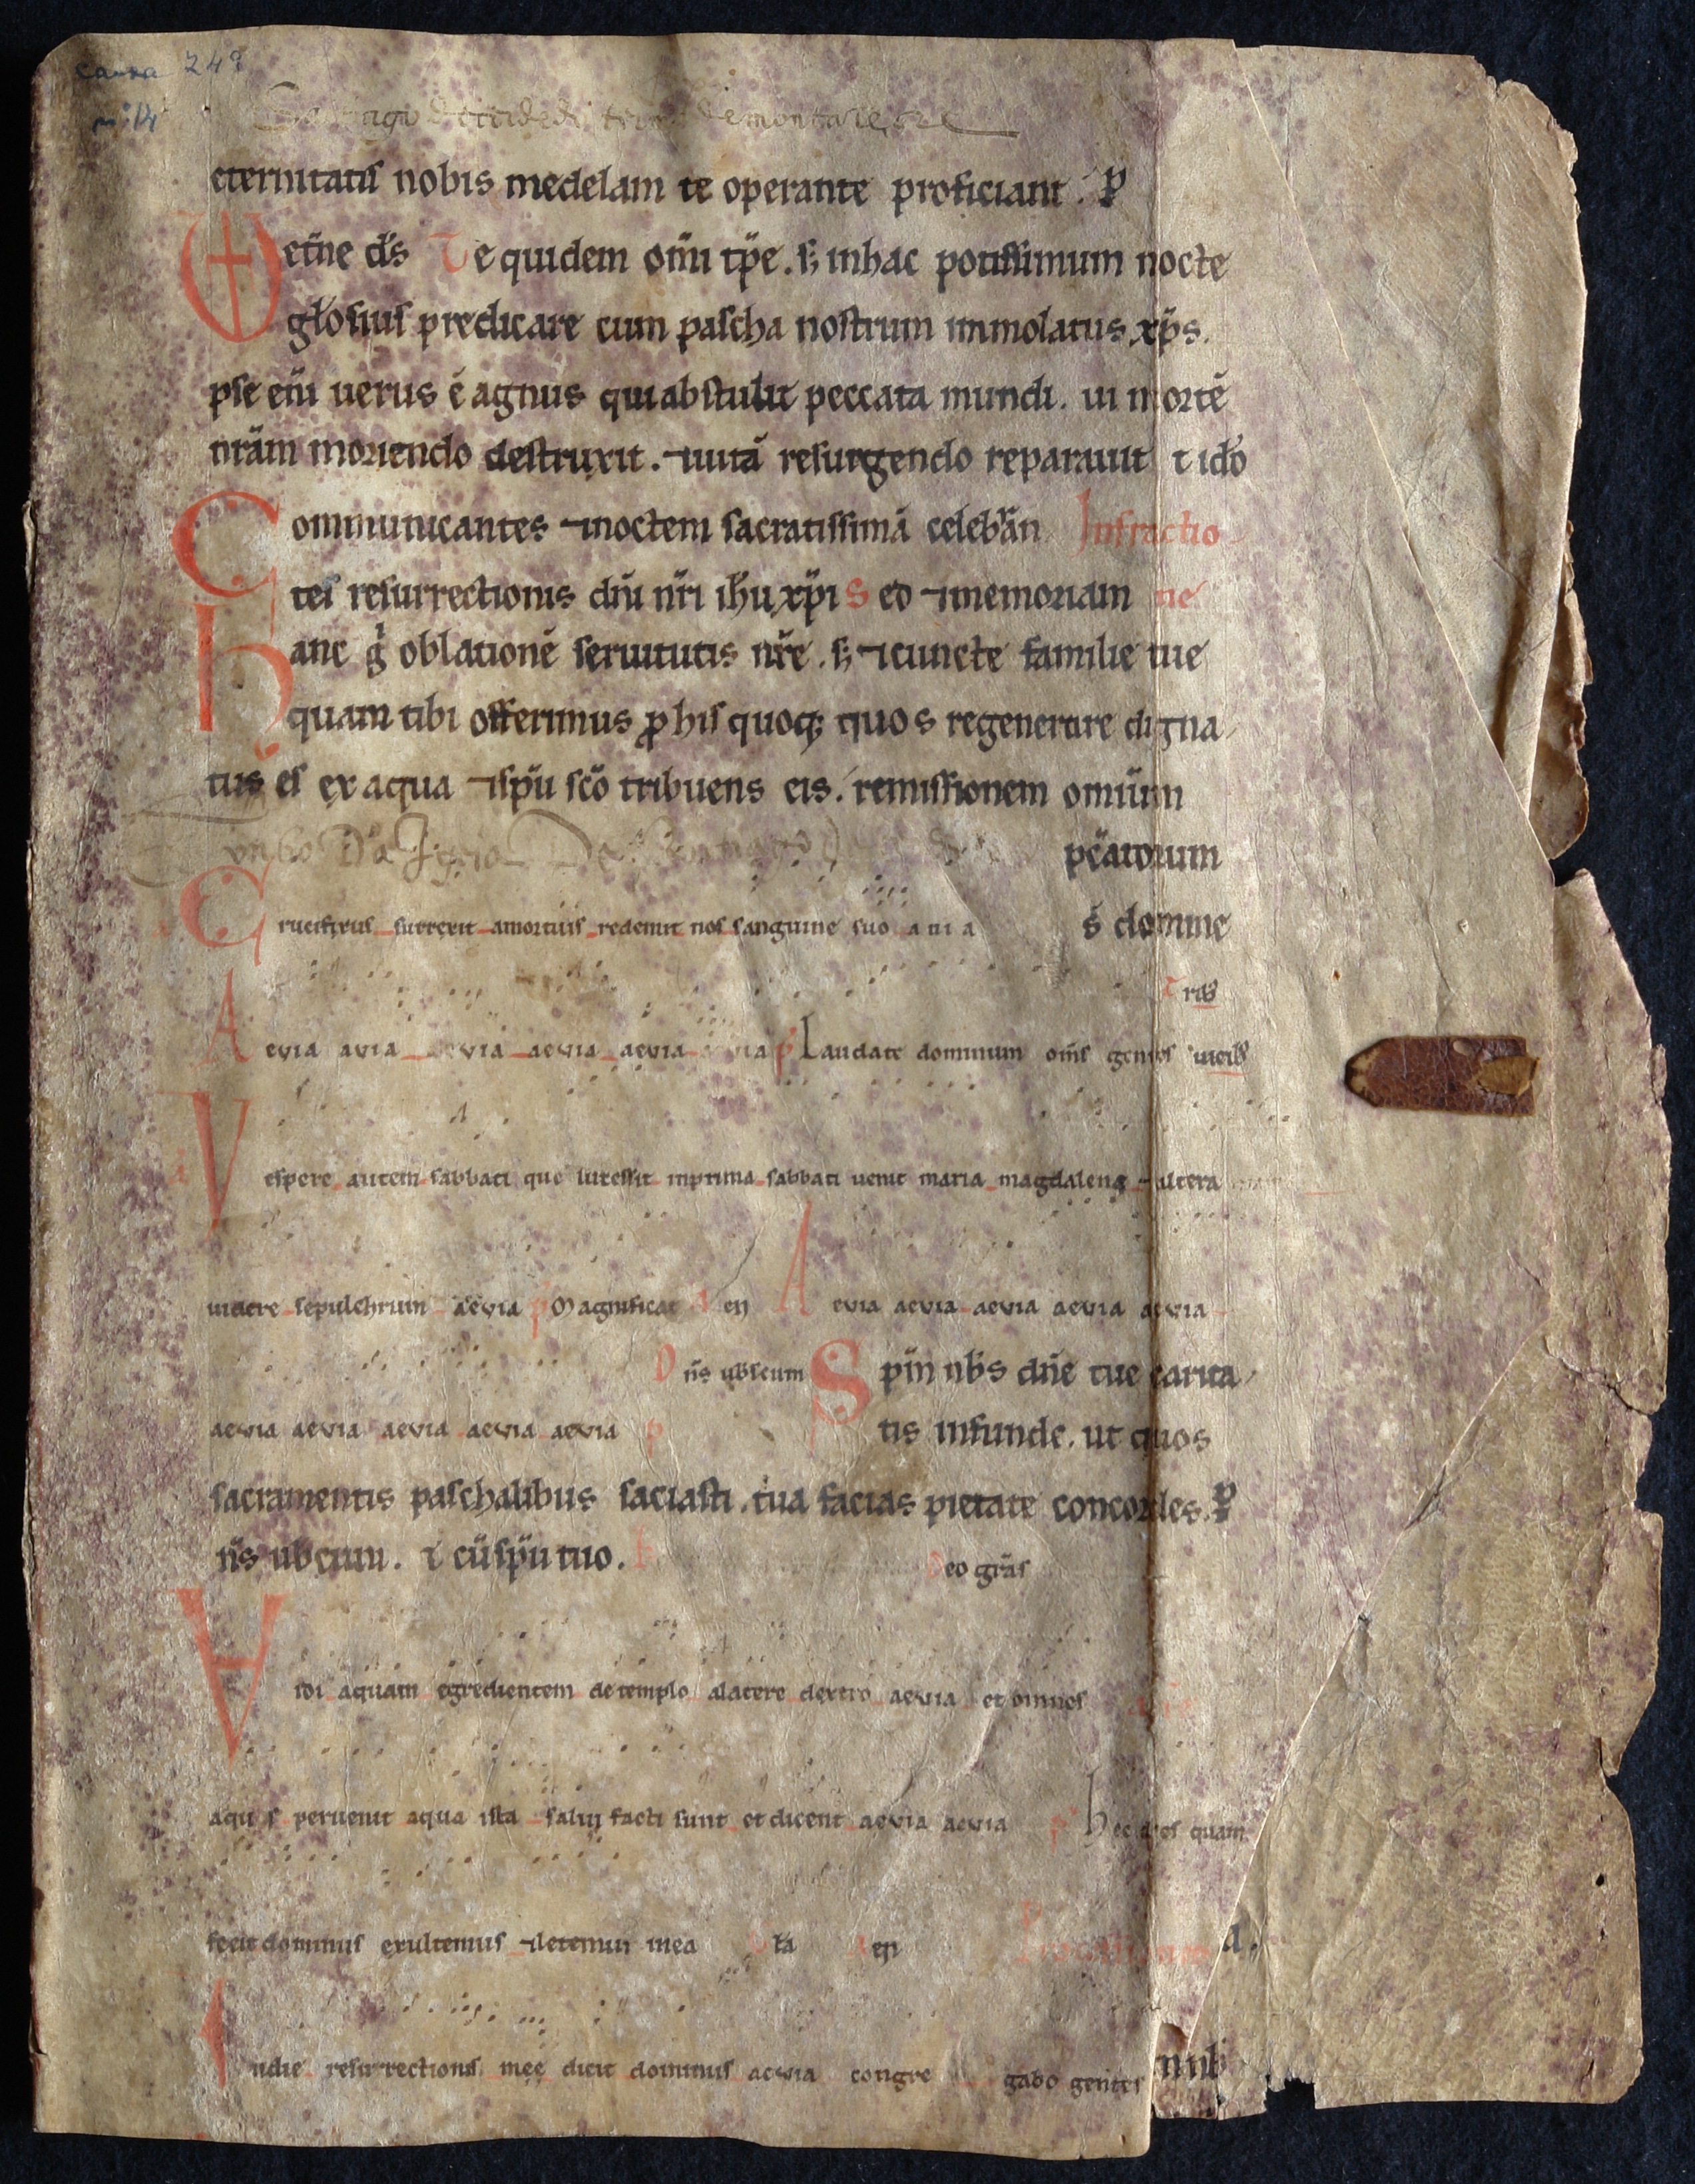 eternitatis nobis medelam te operante proficiant. P
et̄ne ds̄ Te quidem om̄i tp̄e. s; inhac potissimum nocte
gl̄osius predicare cum pascha nostrum immolatus xp̄s.
pse eni uerus ē agnus qui abstulit peccata mundi. ui mortē
nrām moriendo destruxit. ⁊ uitā resurgendo reparauit t ido
Communicantes ⁊ noctem sacratissimā celebrān Infractio
tei resurrectionis dn̄i nr̄i ihū xp̄i Sed ⁊ memoriam ne
hanc g̊ oblationē seruitutis nr̄e. s; ⁊ cuncte familie tue
quam tibi offerimus ꝓ his quoq; quos regenerare digna
tus es ex aqua ⁊ sp̄u sc̄o tribuens eis. remissionem omium
pc̄atorum
Crucifixus surrexit amortuis redemit nos sanguine suo a ui a s̄ domine
Aevia avia aevia aevia aevia p Laudate dominum om̄s gentes
Vespere autem sabbati que lucessit inprima sabbati uenit maria magdalena ⁊ altera
uidere sepulchrum aevia p Magnificat en Aevia aevia aevia aevia aevia
Dn̄s ubscum Spīn nb̄s dn̄e tue carita
aevia aevia aevia aevia aevia p tis infunde. ut quos
sacramentis paschalibus saciasti. tua facias pietate concordes. P
n̄s ubcum. t cū sp̄u tuo. Deo grās
Vidi aquam egredientem de templo alatere dextro aevia et omnes
aqu s peruenit aqua ista salui facti sunt et dicent aevia aevia p hec dies quam
fecit dominus exultemus ⁊ letemur inea en
Indie resurrectionis mee dicit dominus aevia congre gabo gentes